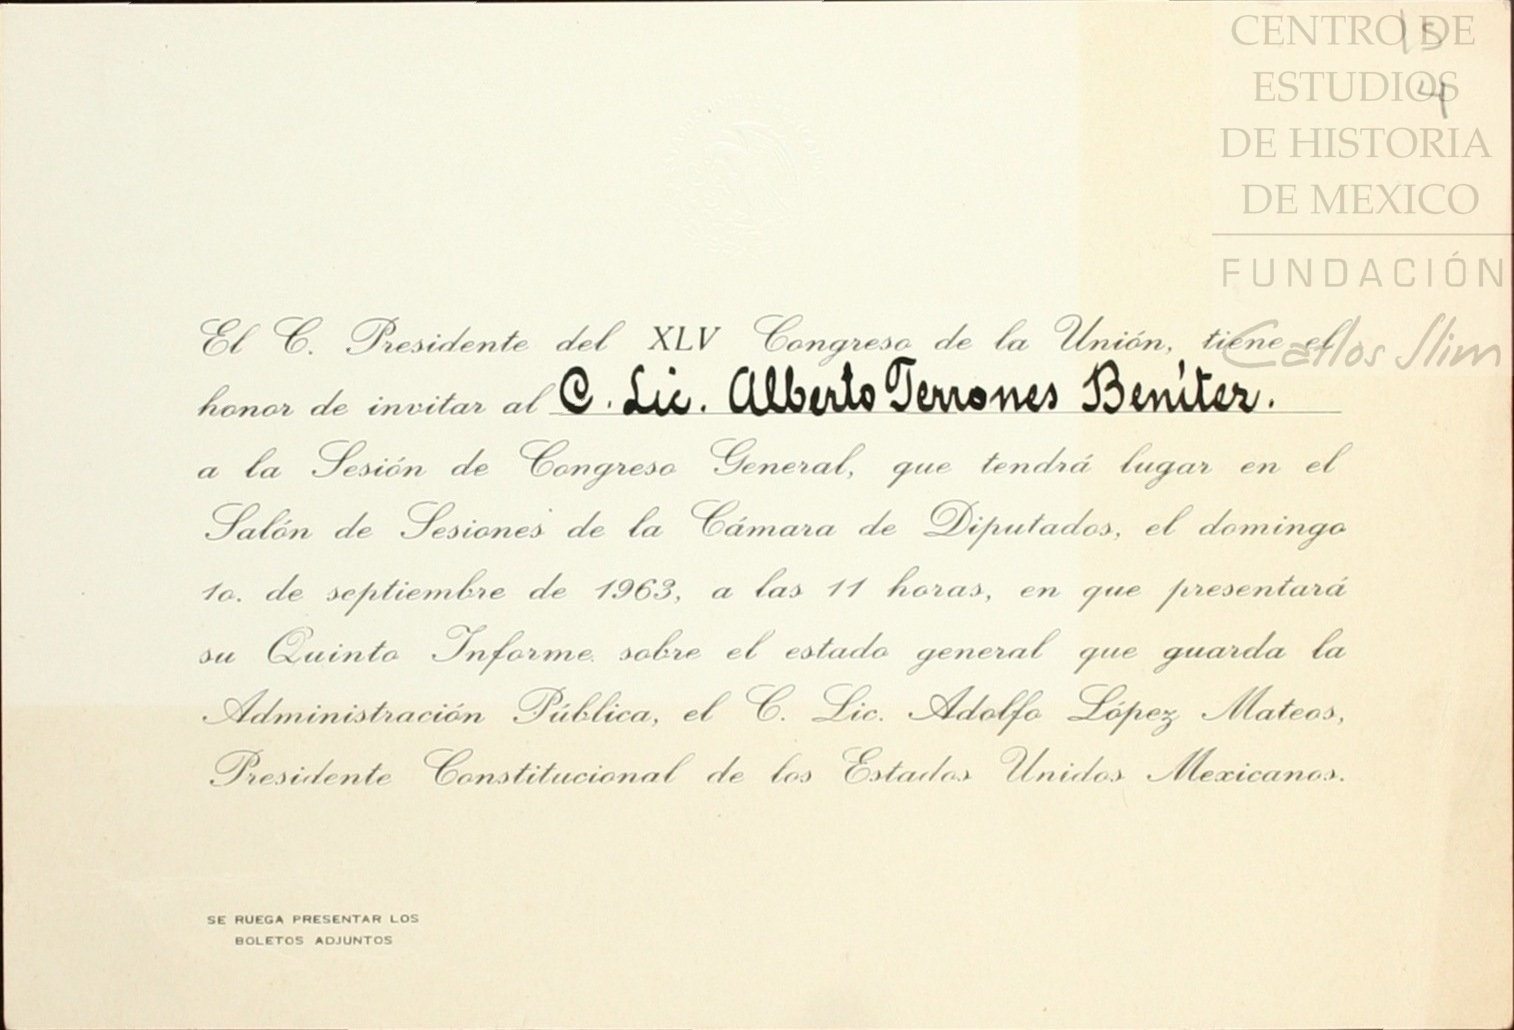 CENTRO DE
ESTUDIOS
DE HISTORIA
DE MEXICO
FUNDACIÓN
Carlos Slim
15
4
El C. Presidente del XLV Congreso de la Unión, tiene el
honor de invitar al C. Lic. Alberto Terrones Benítez.
a la Sesión de Congreso General, que tendrá lugar en el
Salón de Sesiones de la Cámara de Diputados, el domingo
1o. de septiembre de 1963, a las 11 horas, en que presentará
su Quinto Informe sobre el estado general que guarda la
Administración Pública, el C. Lic. Adolfo López Mateos,
Presidente Constitucional de los Estados Unidos Mexicanos.
SE RUEGA PRESENTAR LOS
BOLETOS ADJUNTOS